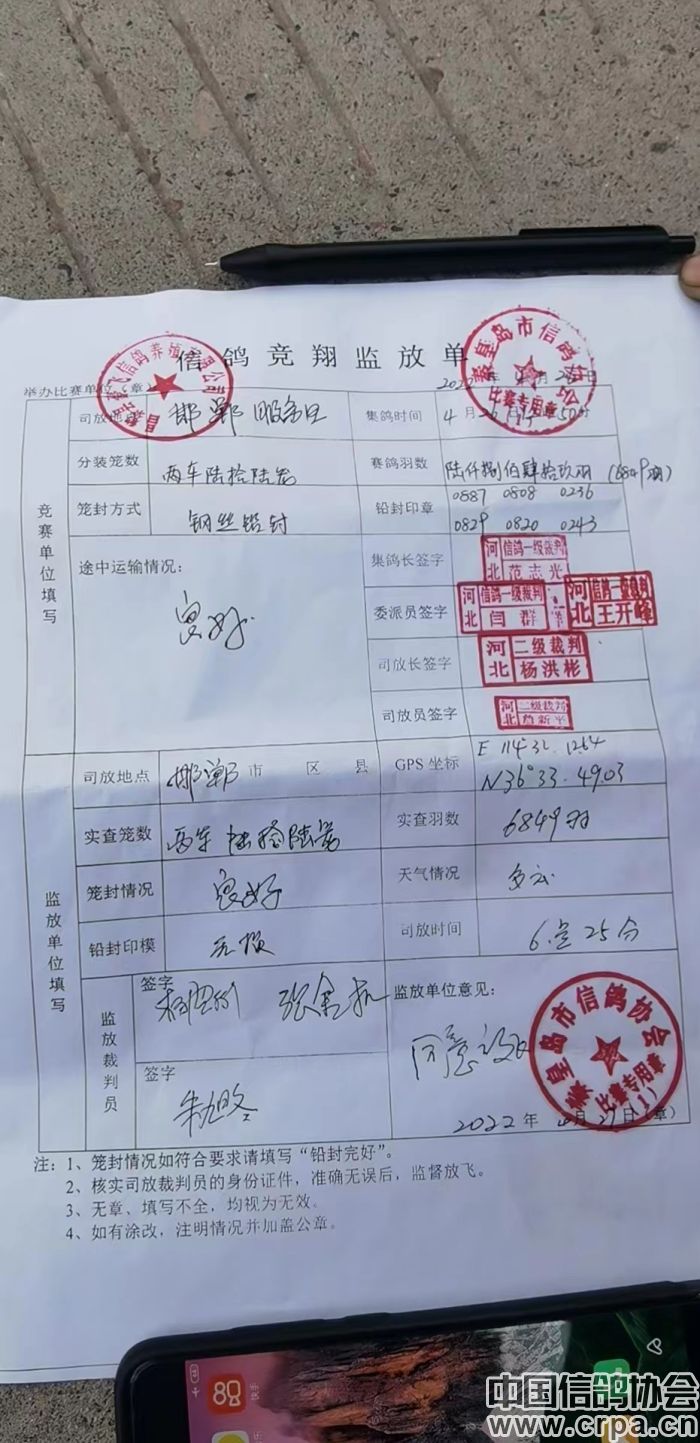 信鸽竞翔监放单
举办比赛单位（章）
2022年4月26日
司放地点 邯郸服务区 集鸽时间 4月26日 50分
分装笼数 两车陆拾陆笼 赛鸽羽数 陆仟捌佰肆拾玖羽（6849羽）
笼封方式 钢丝铅封 铅封印章 0887 0808 0236
0829 0820 0243
竞赛单位填写
途中运输情况：
良好
集鸽长签字 河北 信鸽一级裁判 范志光
委派员签字 河北 信鸽一级裁判 闫群 河北 信鸽一级裁判 王开峰
司放长签字 河北 二级裁判 杨洪彬
司放员签字 河北 二级裁判 新平
司放地点 邯郸市 区 县 GPS 坐标 E 114°32.1264
N36°33.4903
实查笼数 两车陆拾陆笼 实查羽数 6849羽
笼封情况 良好 天气情况 多云
铅封印模 无损 司放时间 6点25分
监放单位填写
监放裁判员
签字
签字
监放单位意见：
同意放飞
2022年4月27日（章）
秦皇岛市信鸽协会
比赛专用章
秦皇岛市信鸽协会
比赛专用章
(1)
飞信鸽养殖有限公司
注：1、笼封情况如符合要求请填写“铅封完好”。
2、核实司放裁判员的身份证件，准确无误后，监督放飞。
3、无章、填写不全，均视为无效。
4、如有涂改，注明情况并加盖公章。
快手
中国信鸽协会
www.crpa.cn